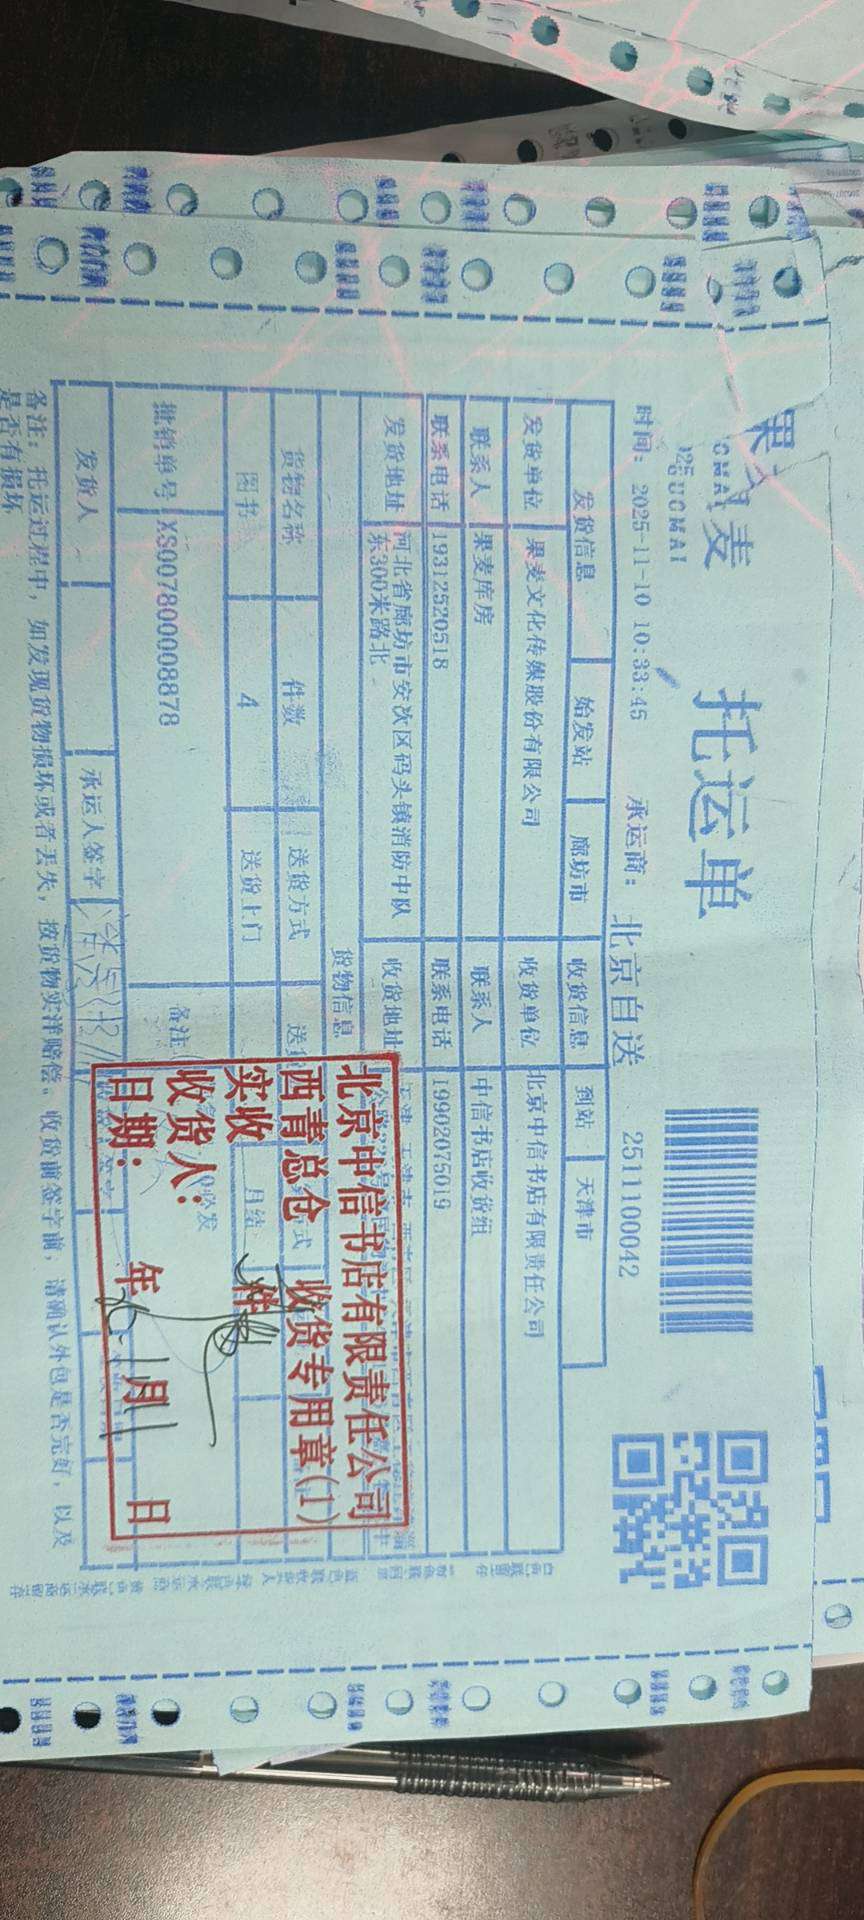 果麦
GUCMAI
托运单
时间: 2025-11-10 10:33:45 承运商: 北京自送 2511100042
发货信息 始发站 廊坊市 收货信息 到站 天津市
发货单位 果麦文化传媒股份有限公司 收货单位 北京中信书店有限责任公司
联系人 果麦库房 联系人 中信书店收货组
联系电话 19312520518 联系电话 19902075019
发货地址 河北省廊坊市安次区码头镇消防中队东300米路北 收货地址
货物信息
货物名称 件数 送货方式
图书 4 送货上门 月结
批销单号 XS007800008878 备注
发货人 承运人签字
备注: 托运过程中, 如发现货物损坏或者丢失, 按货物实洋赔偿。收货前签字前, 请确认外包是否完好, 以及
是否有损坏
北京中信书店有限责任公司
西青总仓 收货专用章(1)
实收 件
收货人:
日期: 年 月 日